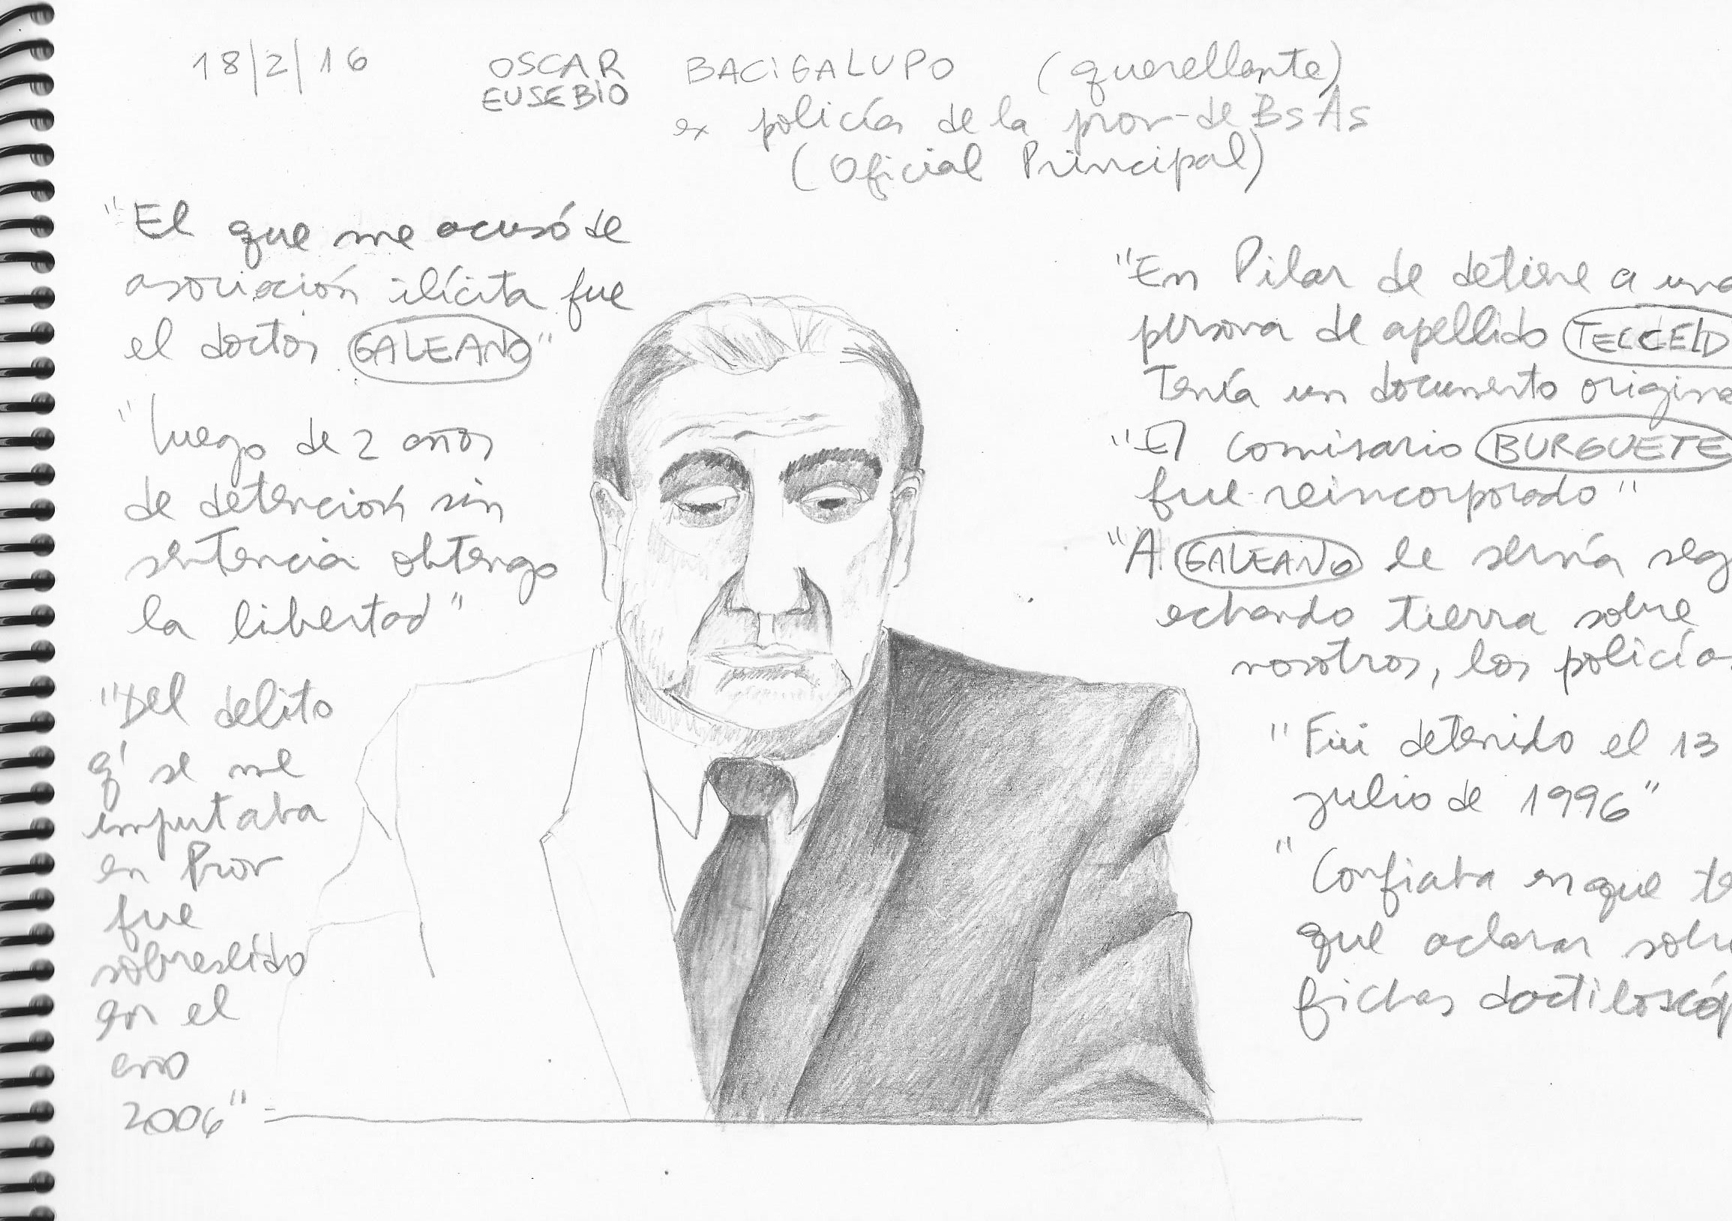 18/2/16 OSCAR EUSEBIO BACIGALUPO (querellante)
ex policía de la prov. de Bs As
(Oficial Principal)
"El que me acusó de
asociación ilícita fue
el doctor GALEANO"
"luego de 2 años
de detención sin
sentencia obtengo
la libertad"
"Del delito
q' se me
imputaba
en Prov
fue
sobreseído
en el
año
2006"
"En Pilar de detiene a una
persona de apellido
Tenía un documento origina
"El comisario BURGUETE
fue reincorporado"
"A GALEANO le servía seg
echando tierra sobre
nosotros, los policía
"Fui detenido el 13
julio de 1996"
"Confiaba en que te
que aclarar sob
fichas dactiloscóp